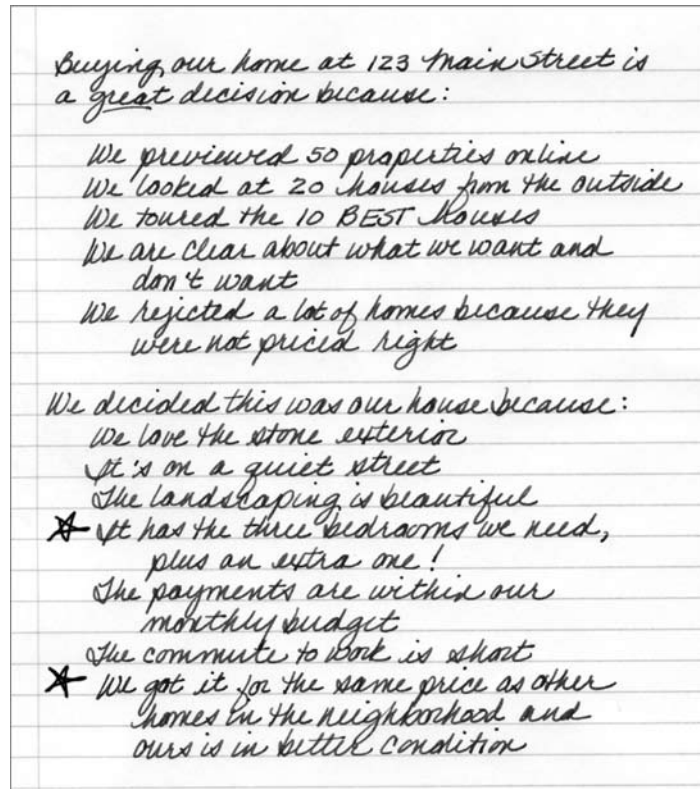 Buying our home at 123 Main Street is
a great decision because:
We previewed 50 properties online
We looked at 20 houses from the outside
We toured the 10 BEST houses
We are clear about what we want and
don't want
We rejected a lot of homes because they
were not priced right
We decided this was our house because:
We love the stone exterior
It's on a quiet street
The landscaping is beautiful
It has the three bedrooms we need,
plus an extra one!
The payments are within our
monthly budget
The commute to work is short
We got it for the same price as other
homes in the neighborhood and
ours is in better condition